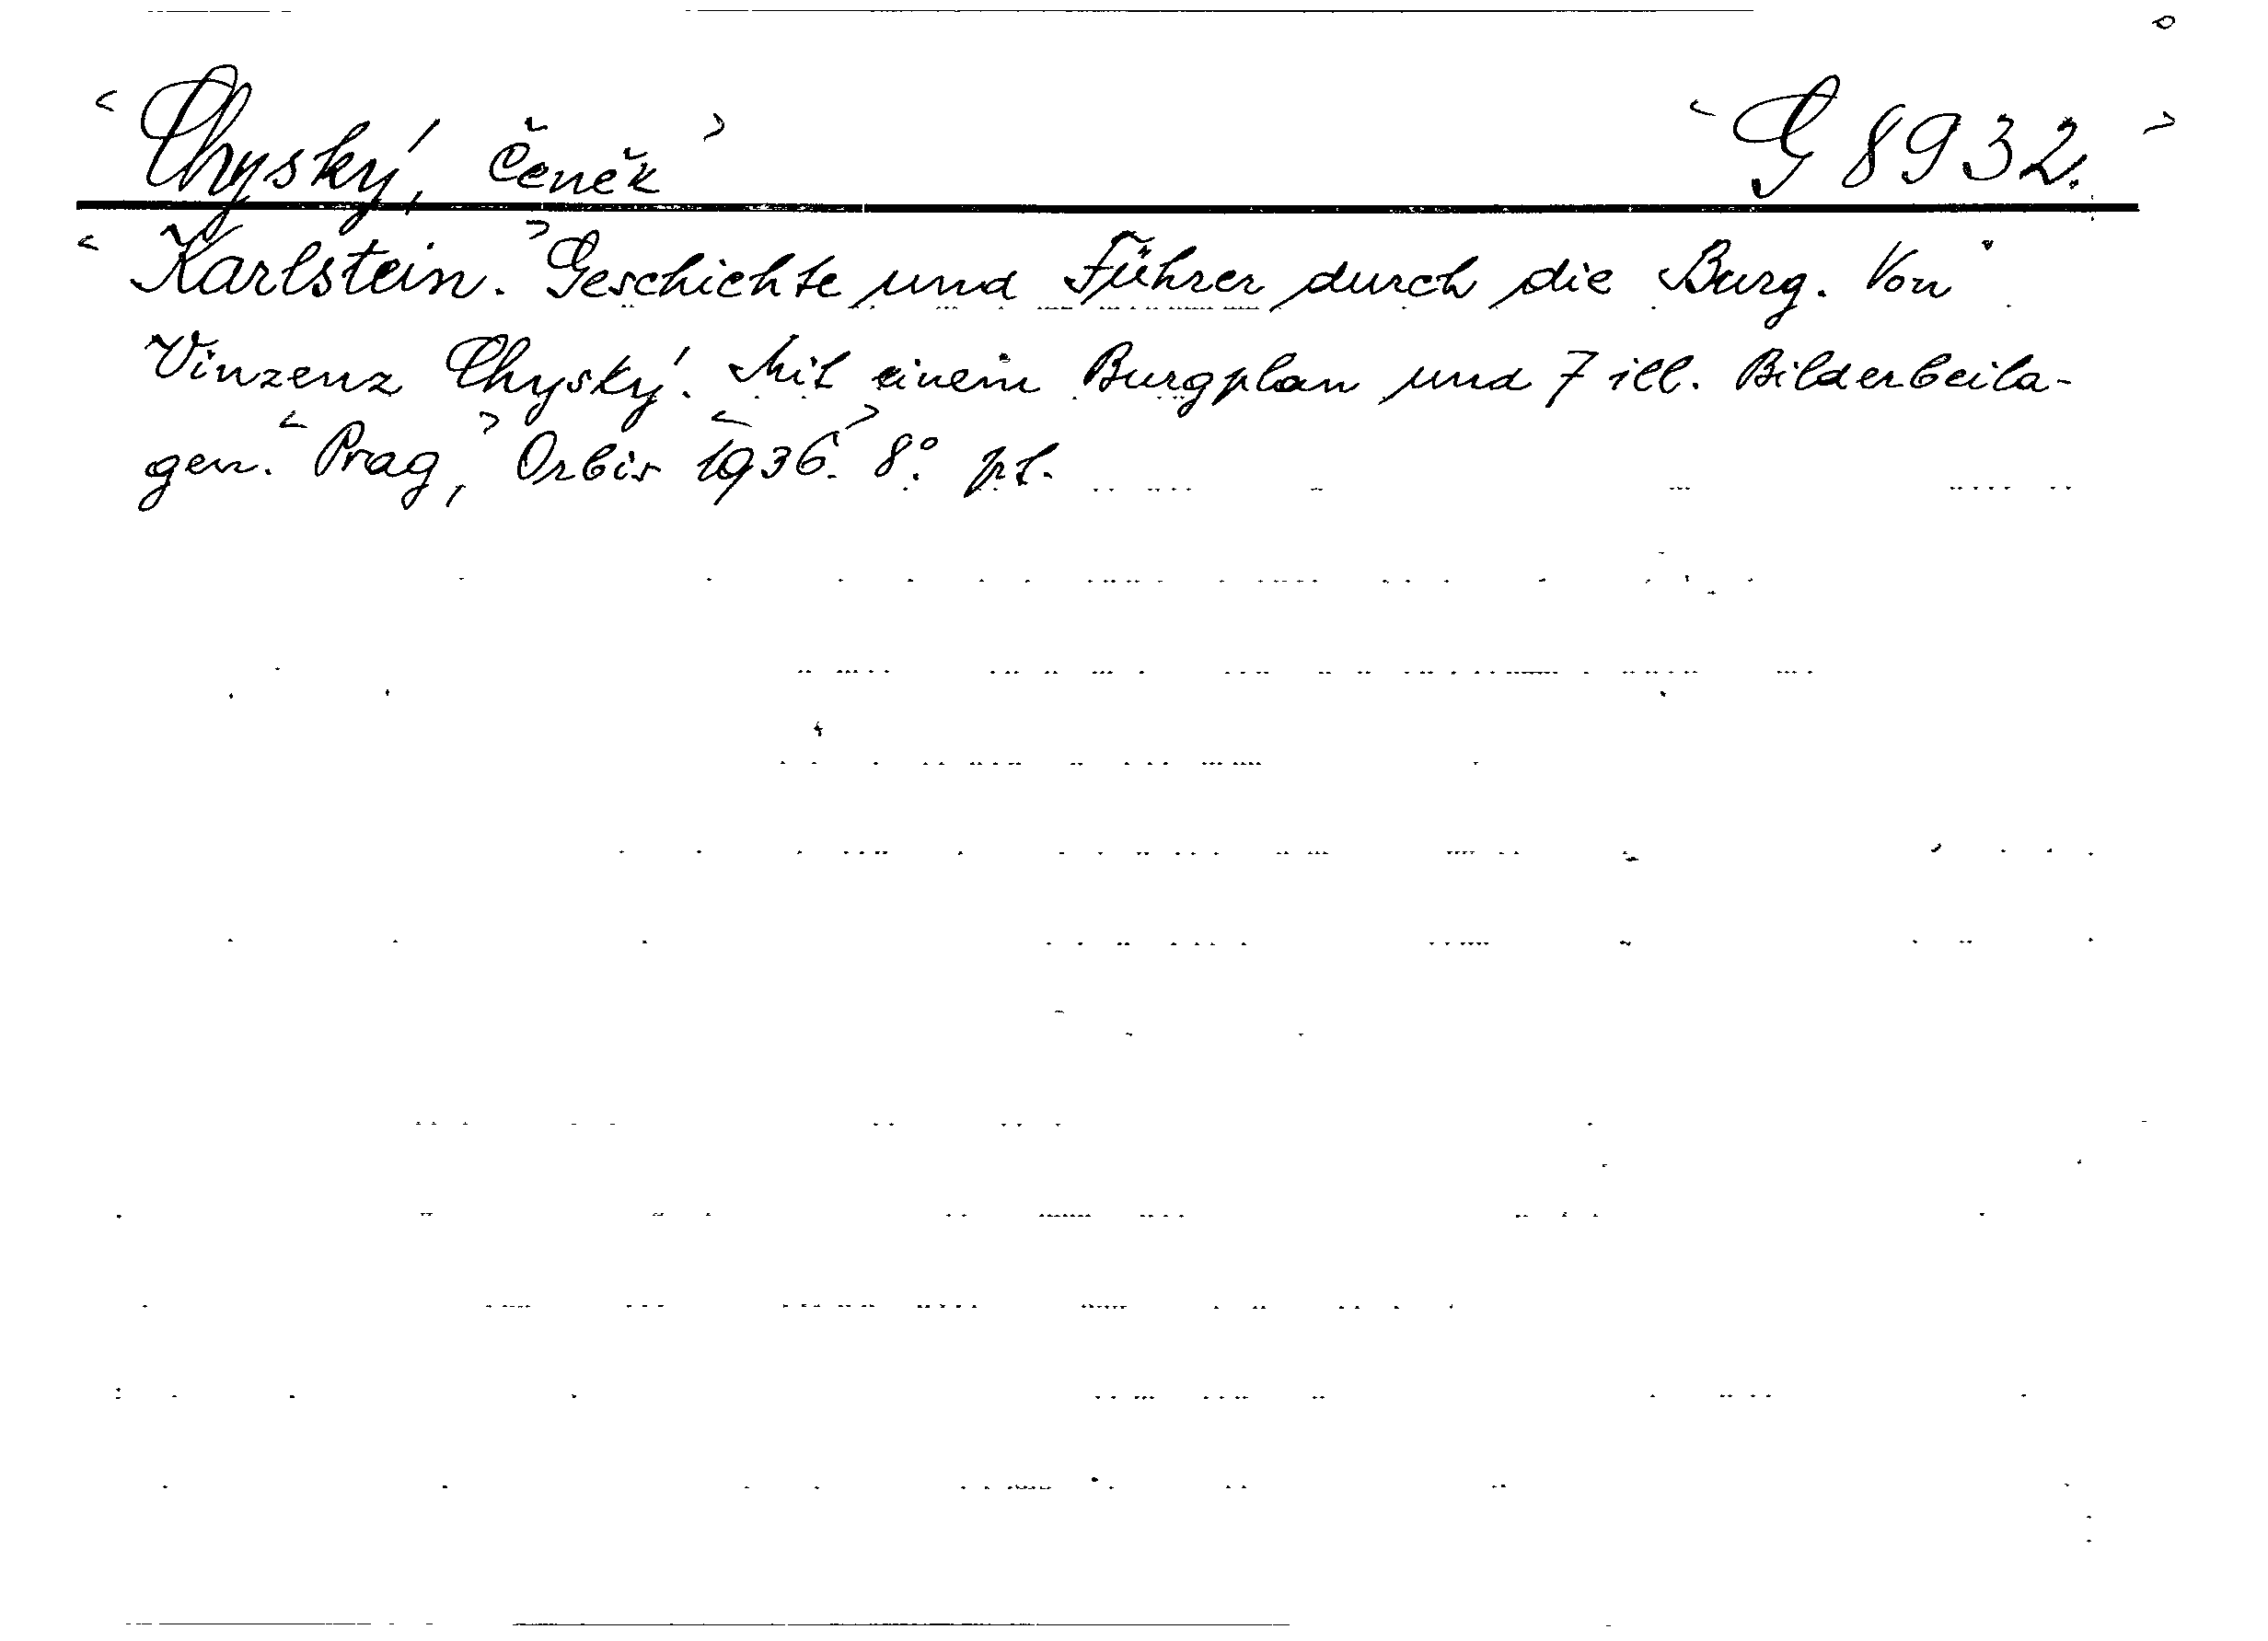 <Chyský, Čeněk> <G 8932.>
<Karlstein.> Geschichte und Führer durch die Burg. Von
Vinzenz Chyský. Mit einem Burgplan und 7 ill. Bilderbeila-
gen. <Prag,> Orbis <1936.> 8°. pl.